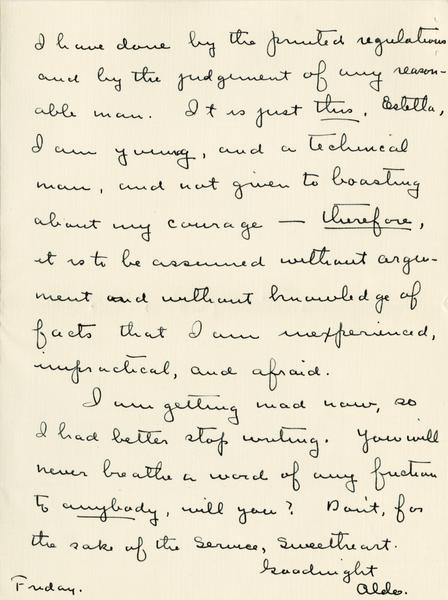 I have done by the printed regulations
and by the judgement of any reason-
able man. It is just this, Estella,
I am young, and a technical
man, and not given to boasting
about my courage — therefore,
it is to be assumed without argu-
ment and without knowledge of
facts that I am inexperienced,
impractical, and afraid.
I am getting mad now, so
I had better stop writing. You will
never breathe a word of any friction
to anybody, will you? Don't, for
the sake of the Service, Sweetheart.
Goodnight
Friday. Aldo.